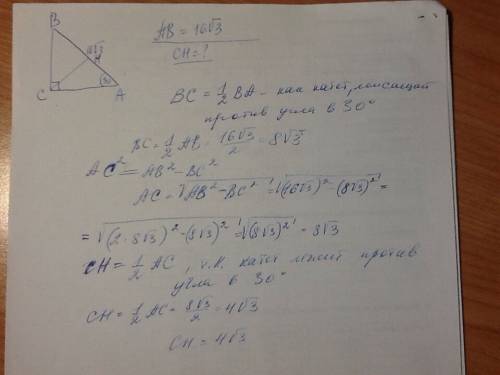 B
16√3
H
30
C
A
AB = 16√3
CH = ?
BC = 1/2 BA - как катет, лежащий
против угла в 30°
BC = 1/2 AB = 16√3/2 = 8√3
AC² = AB² - BC²
AC = √(AB² - BC²) = √((16√3)² - (8√3)²) =
= √((2·8√3)² - (8√3)²) = √((8√3)²) = 8√3
CH = 1/2 AC, т.к. катет лежит против
угла в 30°
CH = 1/2 AC = 8√3/2 = 4√3
CH = 4√3